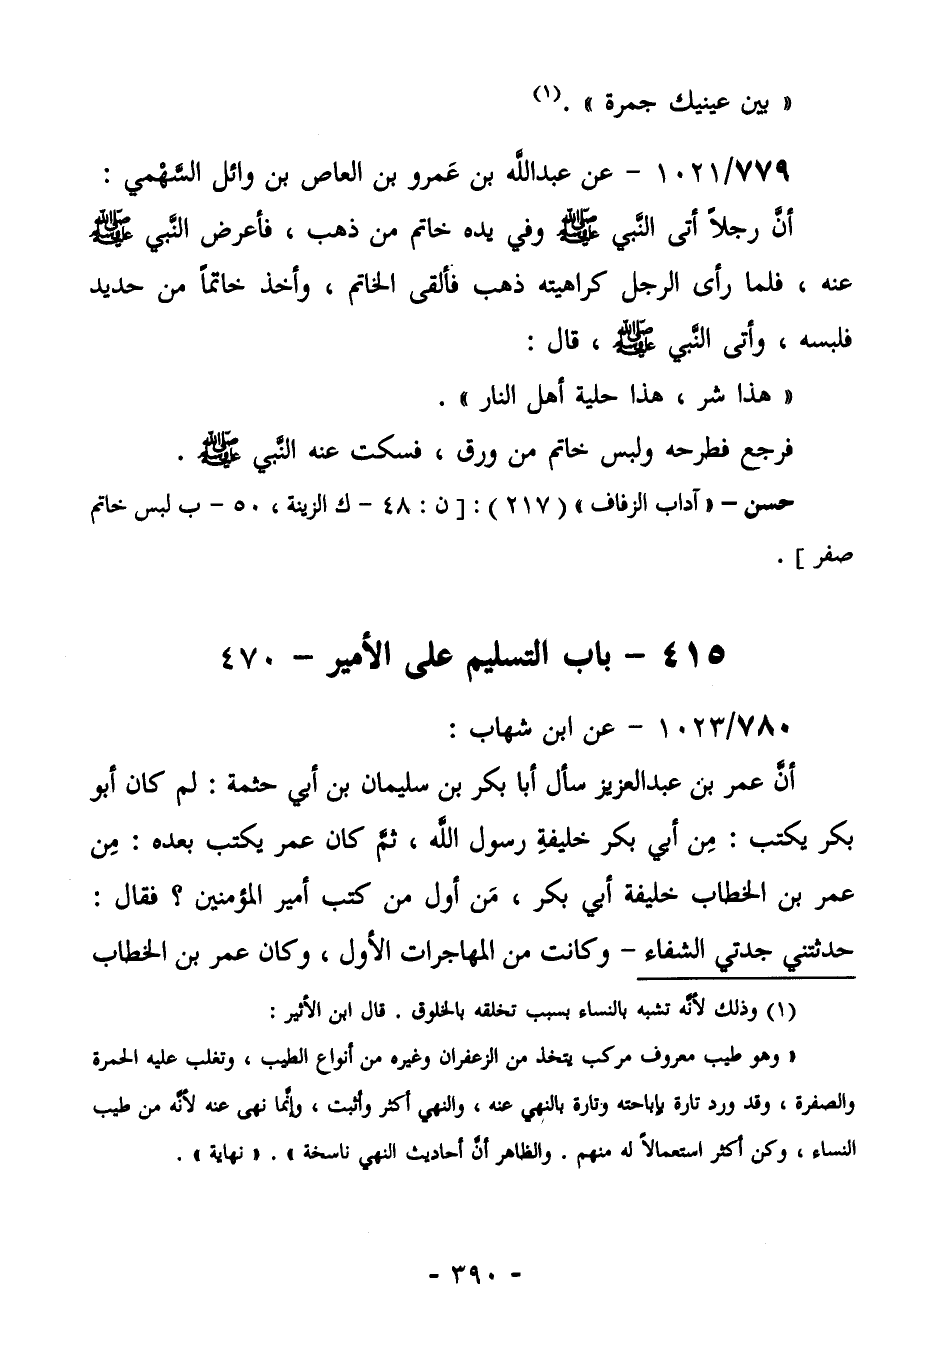 « بين عينيك جمرة » .(١)
١٠٢١/٧٧٩ – عن عبدالله بن عَمرو بن العاص بن وائل السَّهْمي :
أنَّ رجلاً أتى النَّبي ﷺ وفي يده خاتم من ذهب ، فأعرض النَّبي ﷺ
عنه ، فلما رأى الرجل كراهيته ذهب فألقى الخاتم ، وأخذ خاتماً من حديد
فلبسه ، وأتى النَّبي ﷺ ، قال :
« هذا شر ، هذا حلية أهل النار » .
فرجع فطرحه ولبس خاتم من ورق ، فسكت عنه النَّبي ﷺ .
حسن – « آداب الزفاف » ( ٢١٧ ) : [ ن : ٤٨ – ك الزينة ، ٥٠ – ب لبس خاتم
صفر ] .
٤١٥ – باب التسليم على الأمير – ٤٧٠
١٠٢٣/٧٨٠ – عن ابن شهاب :
أنَّ عمر بن عبدالعزيز سأل أبا بكر بن سليمان بن أبي حثمة : لم كان أبو
بكر يكتب : مِن أبي بكر خليفةِ رسول الله ، ثمَّ كان عمر يكتب بعده : مِن
عمر بن الخطاب خليفة أبي بكر ، مَن أول من كتب أمير المؤمنين ؟ فقال :
حدثتني جدتي الشفاء – وكانت من المهاجرات الأول ، وكان عمر بن الخطاب
(١) وذلك لأنَّه تشبه بالنساء بسبب تخلقه بالخلوق . قال ابن الأثير :
« وهو طيب معروف مركب يتخذ من الزعفران وغيره من أنواع الطيب ، وتغلب عليه الحمرة
والصفرة ، وقد ورد تارة بإباحته وتارة بالنهي عنه ، والنهي أكثر وأثبت ، وإنَّما نهى عنه لأنَّه من طيب
النساء ، وكن أكثر استعمالاً له منهم . والظاهر أنَّ أحاديث النهي ناسخة » . « نهاية » .
- ٣٩٠ -